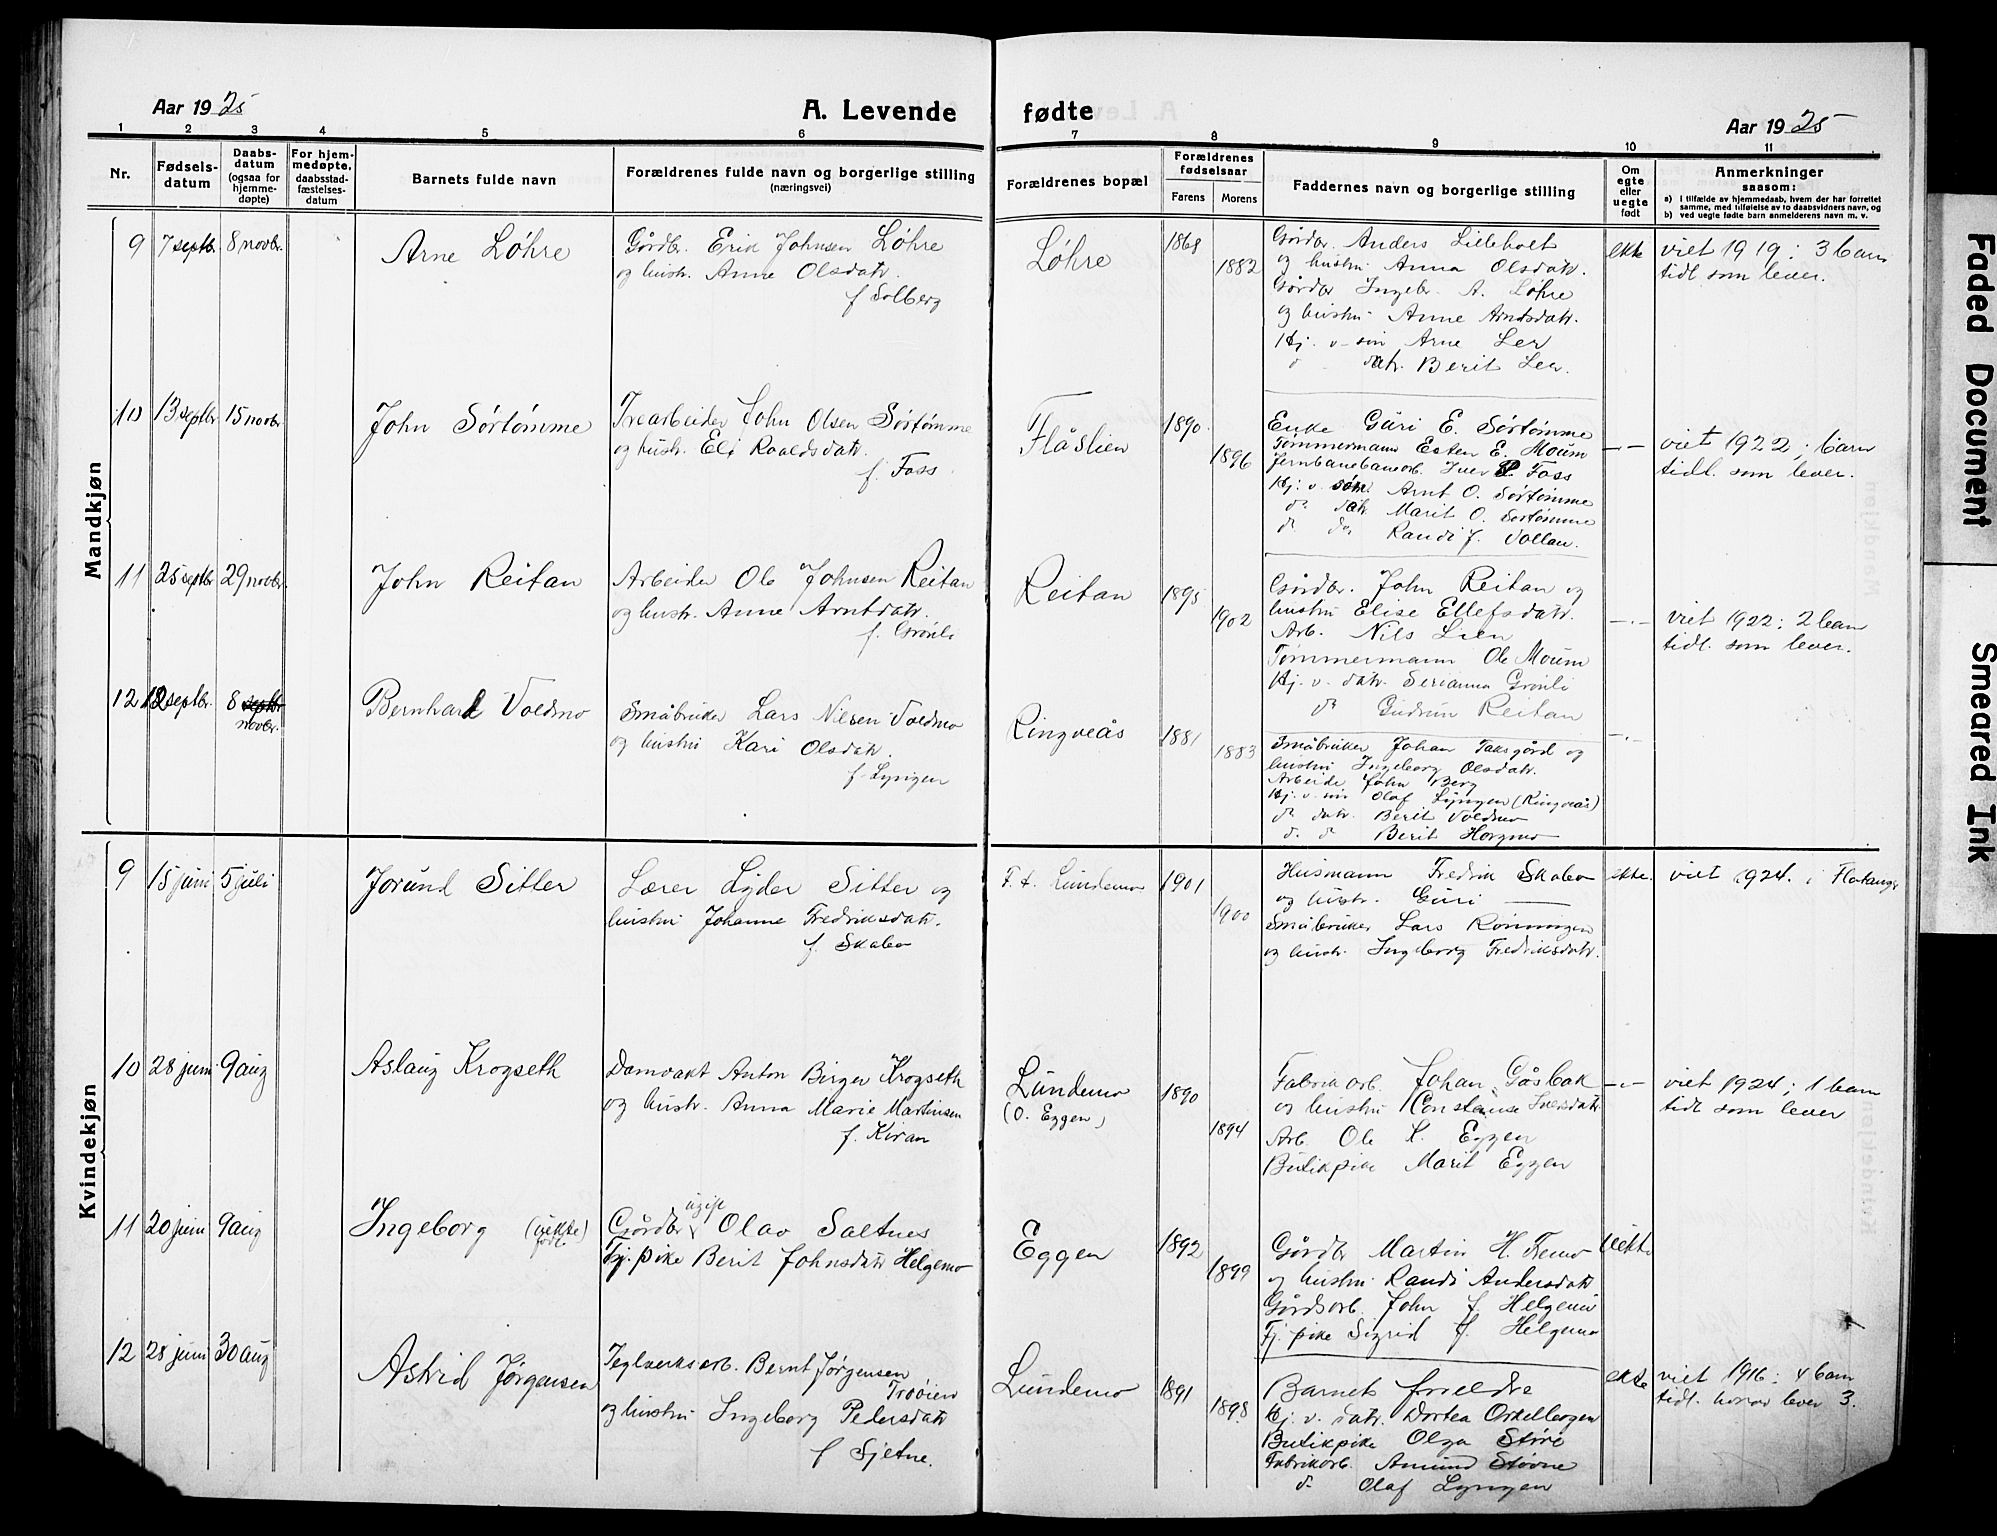 Aar 1925
A. Levende
fødte
Aar 1925
1 2 3 4 5 6 7 8 9 10 11
Nr.
Fødsels-
datum
Daabs-
datum
(ogsaa for
hjemme-
døpte)
For hjem-
medøpte,
daabsstad-
fæstelses-
datum
Barnets fulde navn
Forældrenes fulde navn og borgerlige stilling
(næringsvei)
Forældrenes bopæl
Forældrenes
fødselsaar
Farens Morens
Faddernes navn og borgerlige stilling
Om
egte
eller
uegte
født
Anmerkninger
saasom:
a) I tilfælde av hjemmedaab, hvem der har forrettet
samme, med tilføielse av to daabsvidners navn, og
b) ved uegte fødte barn anmelderens navn m. v.
Mandkjøn
9 7 septbr. 8 novbr.
Arne Løhre
Gårdbr. Erik Johnsen Løhre
og hustr. Anne Olsdatr.
f. Solberg
Løhre
1868
1882
Gårdbr. Anders Lillebolt
og hustru Anna Olsdatr.
Gårdbr Ingebr. A. Løhre
og hustru Anne Arntsdatr.
Hj. v. søn Arne Ler
d datr. Berit Ler.
ekte
viet 1919: 3 barn
tidl. som lever.
10 13 septbr 15 novbr.
John Sørtømme
Trearbeider John Olsen Sørtømme
og hustr. Eli Roaldsdatr.
f. Foss
Flåslien
1890.
1896
Enke Guri E. Sørtømme
Tømmermann Esten E. Moum
Jernbanebanearb. Iver P. Foss
Hj. v. søn Arnt O. Sørtømme
do datr Marit O. Sørtømme
do do Randi J. Vollan.
-"-
viet 1922; 1 barn
tidl. som lever.
11 25 septbr 29 novbr.
John Reitan
Arbeider Ole Johnsen Reitan
og hustr. Anne Arntdatr.
f. Grønli
Reitan
1895
1902
Gårdbr. John Reitan og
hustru Elise Ellefsdatr.
Arb. Nils Lien
Tømmermann Ole Moum
Hj. v. datr. Serianna Grønli
do Gudrun Reitan
-"-
viet 1922: 2 barn
tidl. som lever.
12 12 septbr. 8 septbr
novbr.
Bernhard Voldmo
Småbruker Lars Nilsen Voldmo
og hustru Kari Olsdatr.
f. Lyngen
Ringveås
1881
1883
Småbruker Johan Taksgård og
hustru Ingeborg Olsdatr.
Arbeide John Berg
Hj. v. søn Olaf Lyngen (Ringveås)
do datr. Berit Voldmo
do. do Berit Horgmo
-"-
Kvindekjøn
9 15 juni 5 juli
Jorund Sitter
Lærer Lyder Sitter og
hustru Johanne Fredriksdatr.
f. Skabo
F. t. Lundemo
1901
1900
Husmann Fredrik Skabo
og hustr. Guri
Småbruker Lars Rønningen
og hustr. Ingeborg Fredriksdatr.
ekte.
viet 1924. i
10 28 juni 9 aug
Aslaug Krogseth
Damvakt Anton Birger Krogseth
og hustr. Anna Marie Martinsen
f. Kiran
Lundemo
(O. Eggen)
1890
1894
Fabrikarb. Johan Gåsbak
og hustru Constanse
Arb. Ole K. Eggen
Butikpike Marit Eggen
-"-
viet 1924; 1 barn
tidl. som lever
11 20 juni 9 aug
Ingeborg (uekte
født.)
ugift
Gårdbr Olav Saltnes
Tj. pike Berit Johnsdatr Helgemo
Eggen
1892
1899
Gårdbr Martin H. Tremo
og hustru Randi Andersdatr
Gårdsarb. John J. Helgemo
Tj. pike Sigrid J. Helgemo
Uekte
12 28 juni 30 aug
Astrid Jørgensen
Teglverksarb. Bernt Jørgensen
Trøøien
og hustru Ingeborg Pedersdatr
f Sjetne.
Lundemo
1891
1898
Barnets foreldre
Hj. v. datr. Dortea Orkelbogen
Butikpike Olga Støre
Fabrikarb. Amund Støvne
do Olaf Lyngen
ekte
viet 1916: 4 barn
tidl. hvorav lever 3.
Faded Document
Smeared Ink